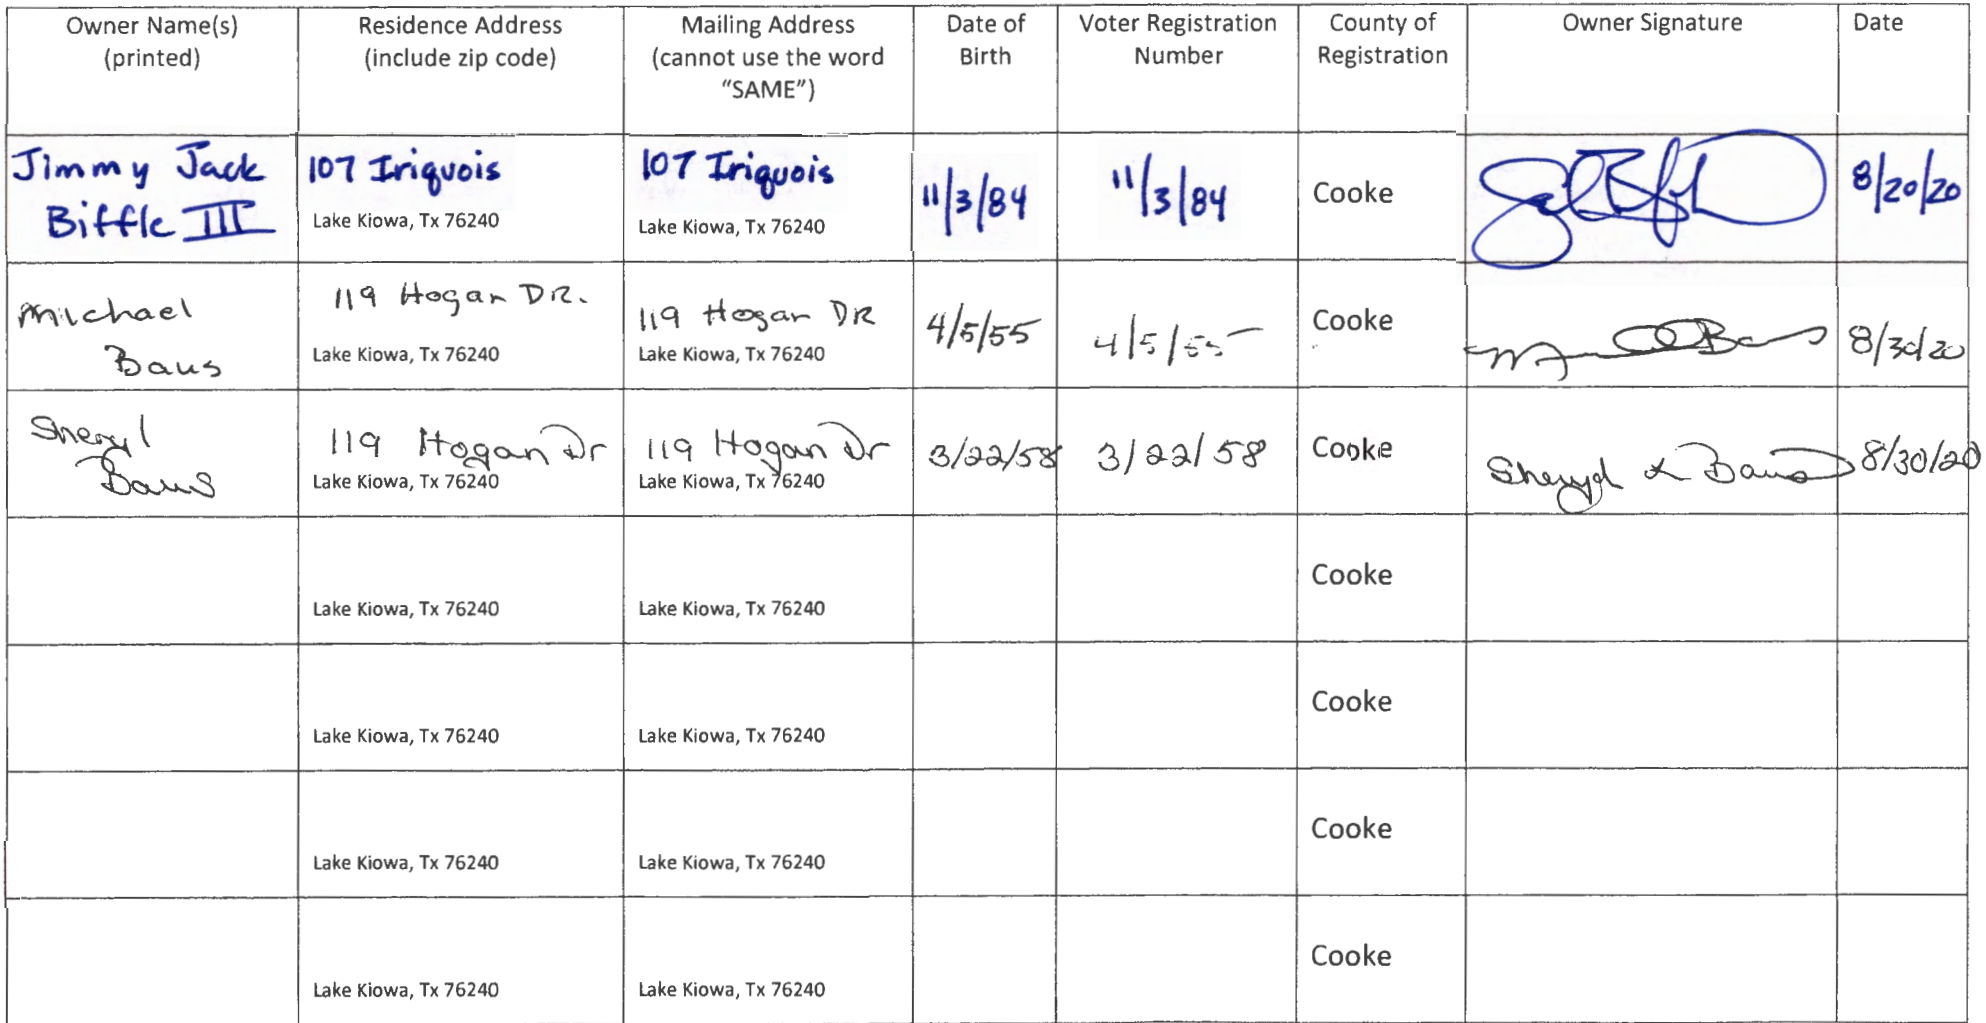 Owner Name(s)
(printed)
Residence Address
(include zip code)
Mailing Address
(cannot use the word
“SAME”)
Date of
Birth
Voter Registration
Number
County of
Registration
Owner Signature
Date
Jimmy Jack
Biffle III
107 Iriquois
Lake Kiowa, Tx 76240
107 Iriquois
Lake Kiowa, Tx 76240
11/3/84
11/3/84
Cooke
8/20/20
Michael
Baus
119 Hogan DR.
Lake Kiowa, Tx 76240
119 Hogan DR
Lake Kiowa, Tx 76240
4/5/55
4/5/55
Cooke
8/30/20
Sheryl
Baus
119 Hogan Dr
Lake Kiowa, Tx 76240
119 Hogan Dr
Lake Kiowa, Tx 76240
3/22/58
3/22/58
Cooke
Sheryl L Baus
8/30/20
Lake Kiowa, Tx 76240
Lake Kiowa, Tx 76240
Cooke
Lake Kiowa, Tx 76240
Lake Kiowa, Tx 76240
Cooke
Lake Kiowa, Tx 76240
Lake Kiowa, Tx 76240
Cooke
Lake Kiowa, Tx 76240
Lake Kiowa, Tx 76240
Cooke